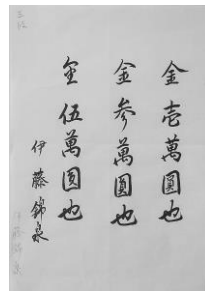 金壱萬圓也
金参萬圓也
金伍萬圓也
伊藤錦泉